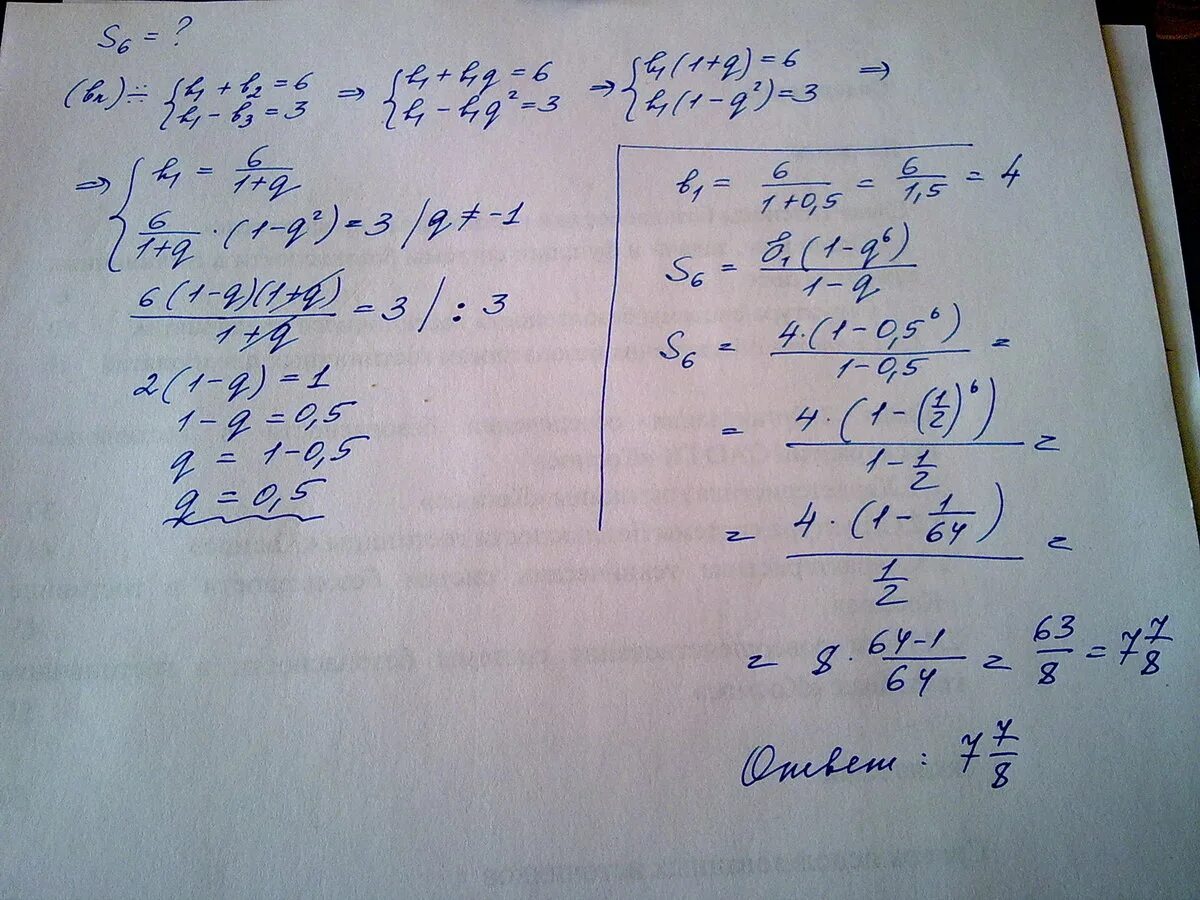 S₆ = ?
(bₙ) ÷ { b₁ + b₂ = 6 ⇒ { b₁ + b₁q = 6 ⇒ { b₁(1+q) = 6 ⇒
{ b₁ − b₃ = 3 { b₁ − b₁q² = 3 { b₁(1−q²) = 3
⇒ { b₁ = 6/(1+q)
{ 6/(1+q) · (1−q²) = 3 / q ≠ −1
6(1−q)(1+q)/(1+q) = 3 | : 3
2(1−q) = 1
1−q = 0,5
q = 1−0,5
q = 0,5
b₁ = 6/(1+0,5) = 6/1,5 = 4
S₆ = b₁(1−q⁶)/(1−q)
S₆ = 4·(1−0,5⁶)/(1−0,5) =
= 4·(1−(1/2)⁶)/(1−1/2) =
= 4·(1−1/64)/(1/2) =
= 8 · (64−1)/64 = 63/8 = 7 7/8
Ответ: 7 7/8